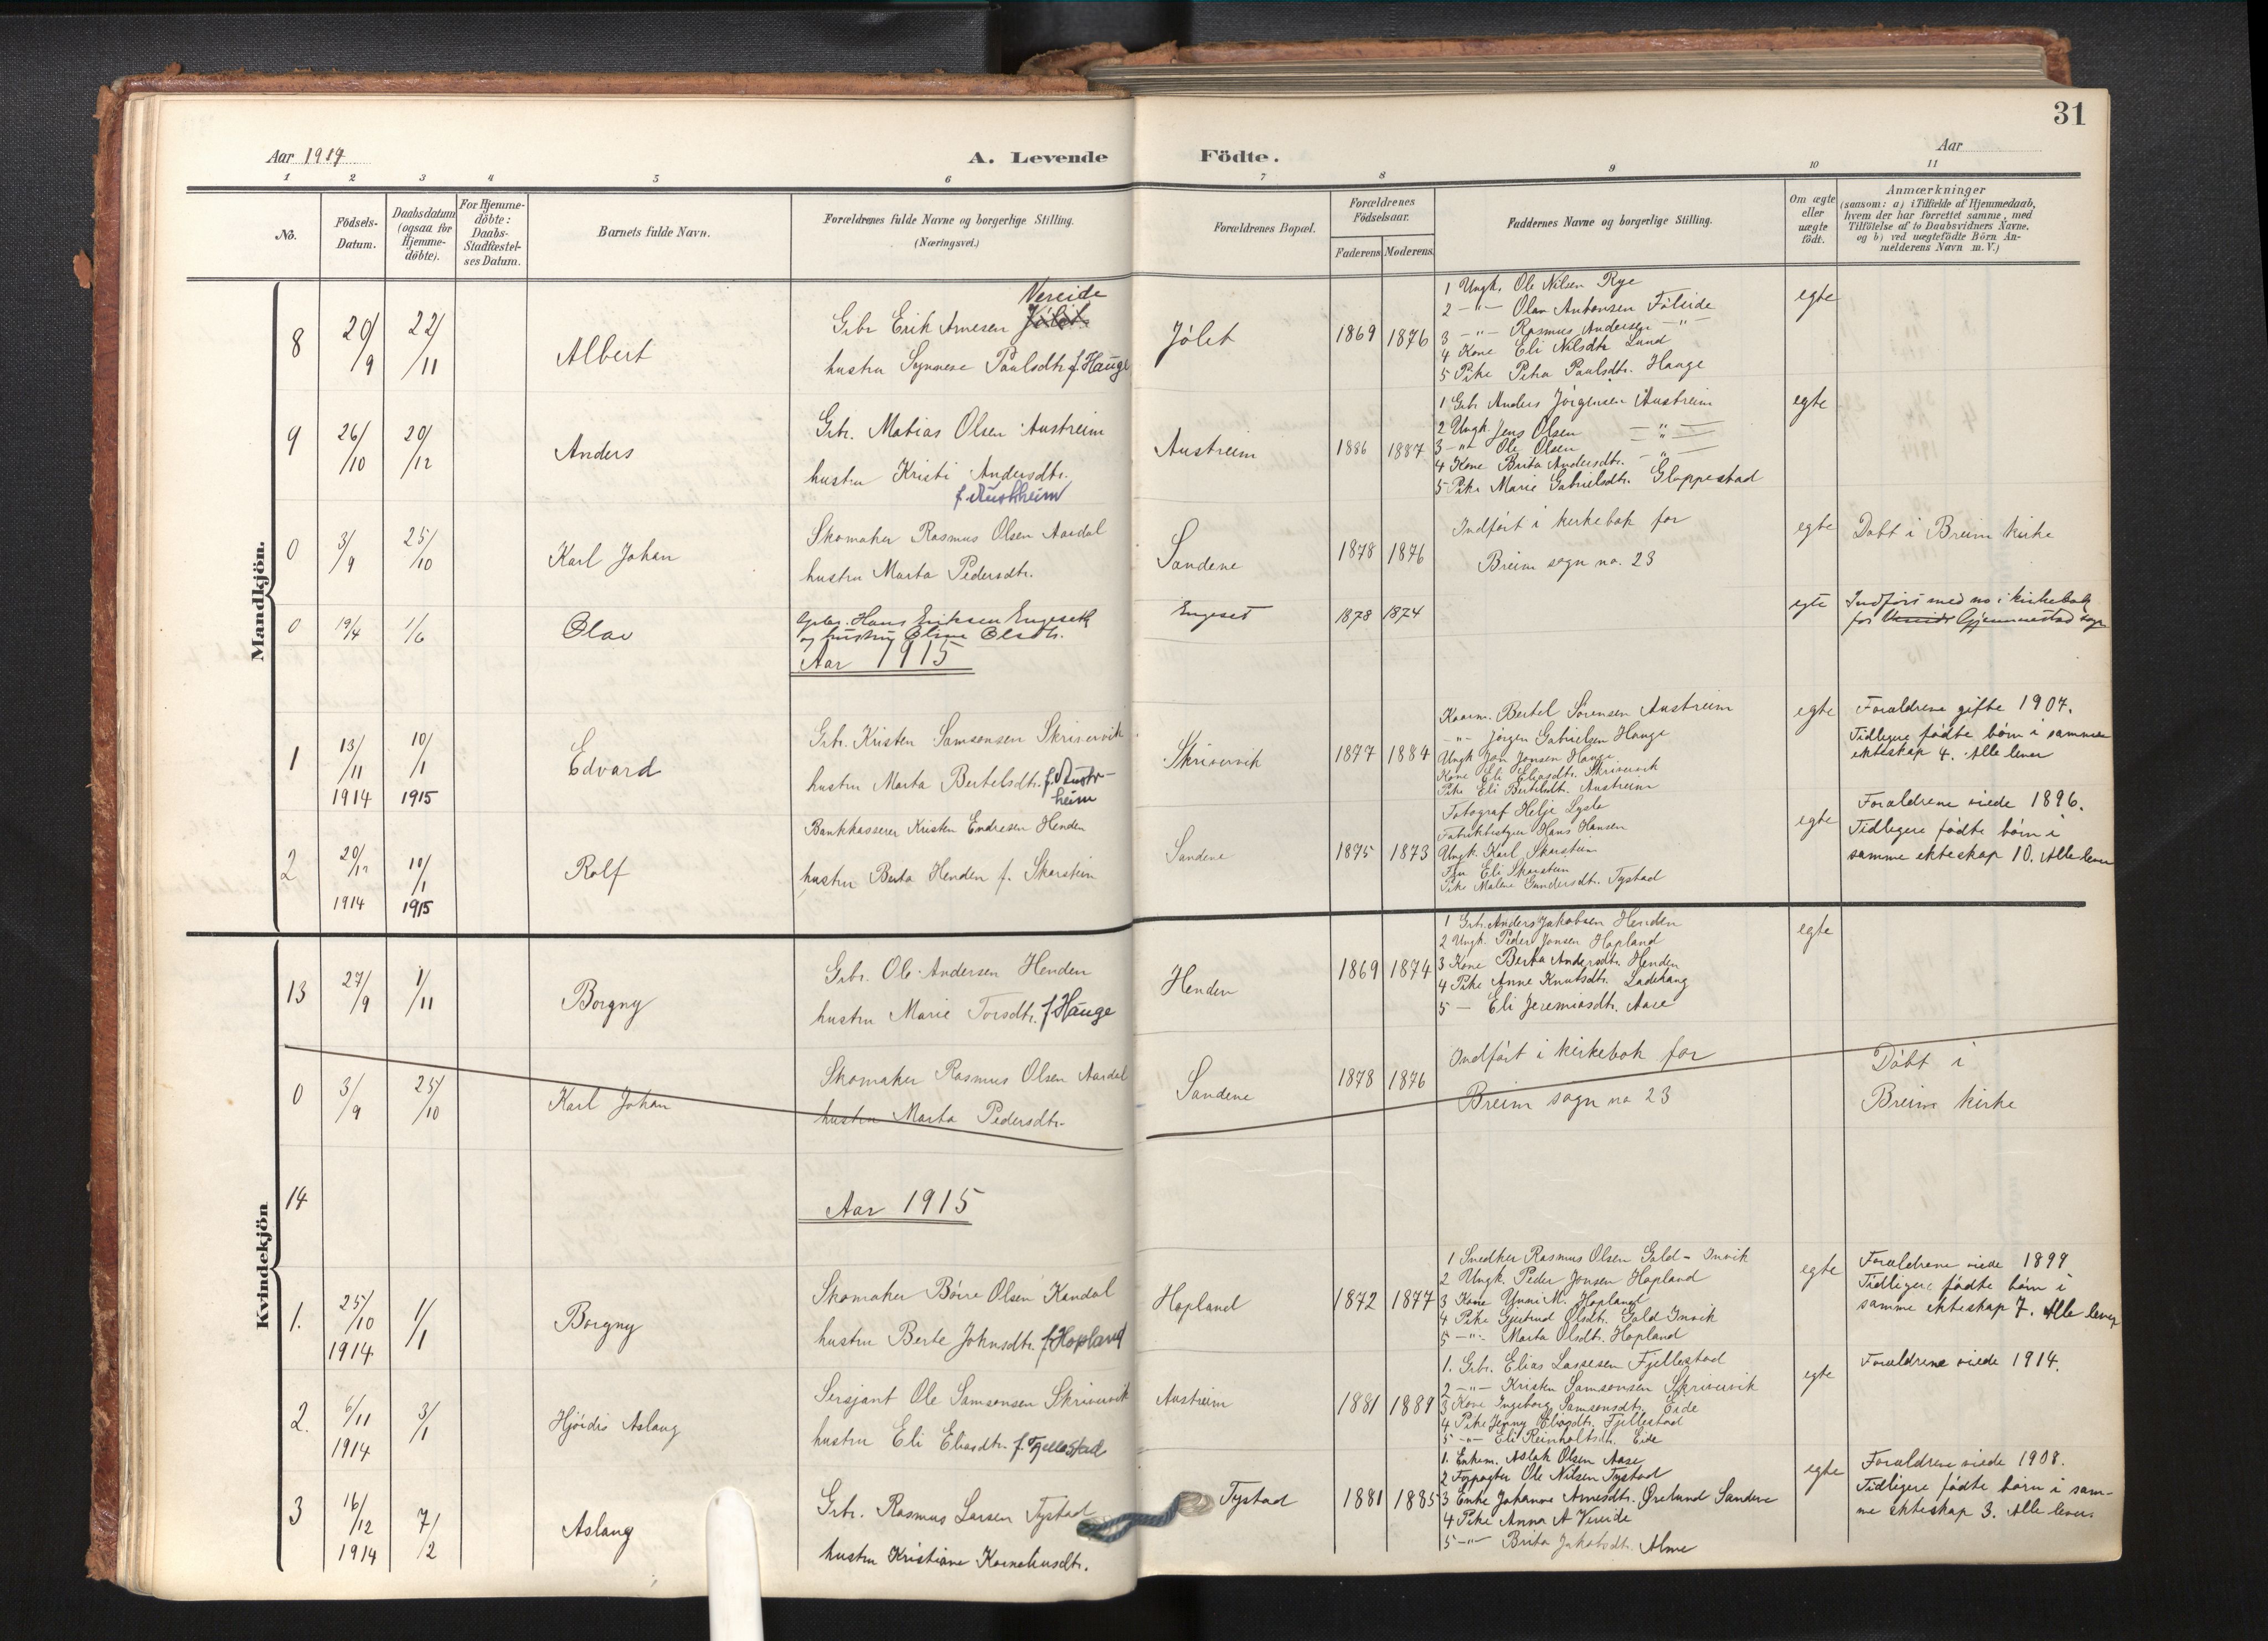 31
Aar 1914
A. Levende Födte.
Aar
1 2 3 4 5 6 7 8 9 10 11
No.
Födsels-Datum.
Daabsdatum (ogsaa for Hjemme-döbte).
For Hjemme-döbte: Daabs-Stadfæstel-ses Datum.
Barnets fulde Navn.
Forældrenes fulde Navne og borgerlige Stilling.
(Næringsvei.)
Forældrenes Bopæl.
Forældrenes Födselsaar.
Faderens Moderens
Faddernes Navne og borgerlige Stilling.
Om ægte eller uægte födt.
Anmærkninger
(saasom: a) i Tilfælde af Hjemmedaab, hvem der har forrettet samme, med Tilföielse af to Daabsvidners Navne, og b) ved uægtefödte Börn An-melderens Navn m. V.)
Mandkjön.
8 20/9 22/11 Albert
Vereide
Grbr Erik Arnesen Jólet
hustru Synneve Paulsdtr f. Hauge
Jólet 1869 1876
1 Ungk. Ole Nilsen Rye
2 -"- Olav Antonsen Fóleide
3 -"- Rasmus Andersen -"-
4 Kone Eli Nilsdtr Lund
5 Pike Petra Paulsdtr. Hauge
egte
9 26/10 20/12 Anders
Grbr. Matias Olsen Austreim
hustru Kristi Andersdtr.
f. Austrheim
Austreim 1886 1887
1 Grbr Anders Jörgensen Austreim
2 Ungk. Jens Olsen -"-
3 -"- Ole Olsen -"-
4 Kone Brita Andersdtr. -"-
5 Pike Marie Gabrielsdtr. Gloppestad
egte
0 3/9 25/10 Karl Johan
Skomaker Rasmus Olsen Aardal
hustru Marta Pedersdtr.
Sandene 1878 1876
Indfört i kirkebok for
Breim sogn no. 23
egte
Döbt i Breim kirke
0 19/4 1/6 Olav
Gbr. Hans Eriksen Engeseth
og hustru Oline Olsdtr.
Engeset 1878 1874
egte
Indfört med no i kirkebok
for Vereide Gjemmestad sogn
Aar 1915
1 13/11 1914 10/1 1915 Edvard
Grbr. Kristen Samsonsen Skrivervik
hustru Marta Bertelsdtr. f. Austr-
heim
Skrivervik 1877 1884
Kaarm. Bertel Sörensen Austreim
-"- Jörgen Gabrielsen Hauge
Ungk Jon Jonsen Hauge
Kone Eli Eliasdtr. Skrivervik
Pike Eli Bertelsdtr. Austreim
egte
Forældrene gifte 1907.
Tidligere födte börn i samme
ekteskap 4. Alle lever
2 20/12 1914 10/1 1915 Rolf
Bankkasserer Kristen Endresen Henden
hustru Berta Henden f. Skarstein
Sandene 1875 1873
Fotograf Helje Lysle
Fabrikbestyrer Hans Hansen
Ungk. Karl Skarstein
Fru Eli Skarstein
Pike Malene Gundersdtr. Tystad
egte
Forældrene viede 1896.
Tidligere födte börn i
samme ekteskap 10. Alle lever
Kvindekjön
13 27/9 1/11 Borgny
Grbr. Ole Andersen Henden
hustru Marie Torsdtr. f. Hauge
Henden 1869 1874
1 Grbr. Anders Jakobsen Henden
2 Ungk. Peder Jonsen Hopland
3 Kone Berta Andersdtr. Henden
4 Pike Anne Knutsdtr. Ladehaug
5 — Eli Jeremiasdtr. Aase
egte
0 3/9 25/10 Karl Johan
Skomaker Rasmus Olsen Aardal
hustru Marta Pedersdtr.
Sandene 1878 1876
Indfört i kirkebok for
Breim sogn no 23
Döbt i
Breim kirke
14
Aar 1915
1. 25/10 1914 1/1 Borgny
Skomaker Böire Olsen Kandal
hustru Berte Johnsdtr. f. Hopland
Hopland 1872 1877
1 Snedker Rasmus Olsen Gald - Invik
2 Ungk. Peder Jonsen Hopland
3 Kone Unni M. Hopland
4 Pike Gjertrud Olsdtr. Gald Invik
5 -"- Marta Olsdtr. Hopland
egte
Forældrene viede 1899
Tidligere födte börn i
samme ekteskap 7. Alle lever
2. 6/11 1914 3/1 Hjördis Aslaug
Sersjant Ole Samsonsen Skrivervik
hustru Eli Eliasdtr. f. Fjellestad
Austreim 1881 1889
1. Grbr. Elias Lassesen Fjellestad
2 -"- Kristen Samsonsen Skrivervik
3 Kone Ingeborg Samsonsdtr. Eide
4 Pike Jenny Eliasdtr. Fjellestad
5 -"- Eli Reinholtsdtr. Eide
egte
Forældrene viede 1914.
3 16/12 1914 7/2 Aslaug
Grbr. Rasmus Larsen Tystad
hustru Kristiane Korneliusdtr.
Tystad 1881 1885
1. Enkem. Aslak Olsen Aase
2 Forpagter Ole Nilsen Tystad
3 Enke Johanne Arnesdtr. Örelund Sandene
4 Pike Anna A Vereide
5 -"- Brita Jakobsdtr. Alme
egte
Forældrene viede 1908.
Tidligere födte börn i sam-
me ekteskap 3. Alle lever.